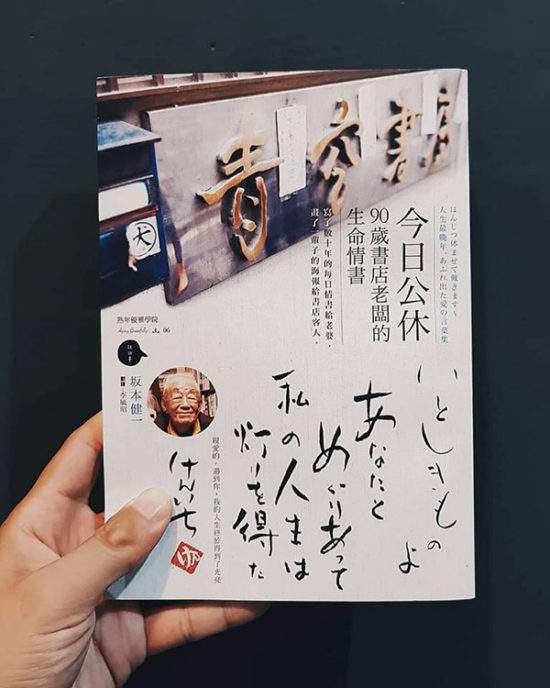 青空書房
犬
ほんじつ休ませて戴きます～
人生最晚年、あふれ出た愛の言葉集
今日公休
90歲書店老闆的
生命情書
寫了數十年的每日情書給老婆，
畫了一輩子的海報給書店客人。
熟年優雅學院
Aging Gracefully 06
坂本健一
翻譯 李毓昭
いとしきものよ
あなたと
めぐりあって
私の人生は
灯りを得た
けんいち
親愛的，遇到你，我的人生終於得到了光亮